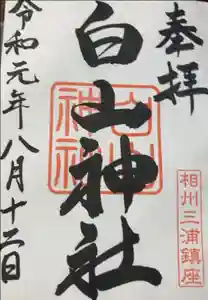 奉拝
白山神社
令和元年八月十二日
相州三浦鎮座